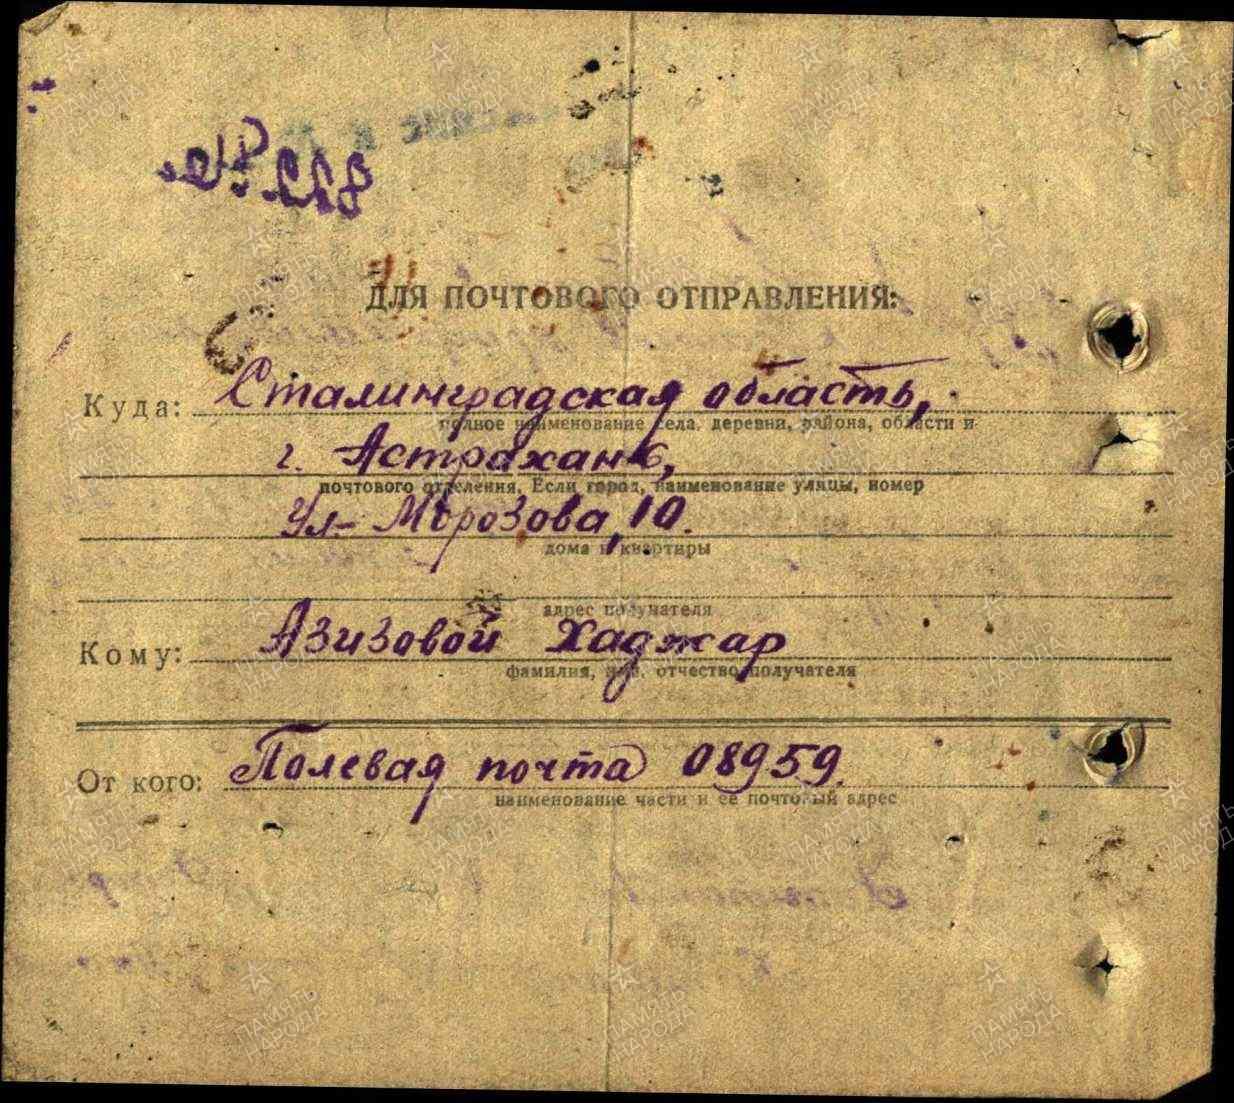 ДЛЯ ПОЧТОВОГО ОТПРАВЛЕНИЯ:
Куда: Сталинградская область,
полное наименование села, деревни, района, области и
г. Астрахань,
почтового отделения. Если город, наименование улицы, номер
Ул- Морозова, 10.
дома и квартиры
адрес получателя
Кому: Азизовой Хаджар
фамилия, имя, отчество получателя
От кого: Полевая почта 08959.
наименование части и её почтовый адрес
ПАМЯТЬ НАРОДА